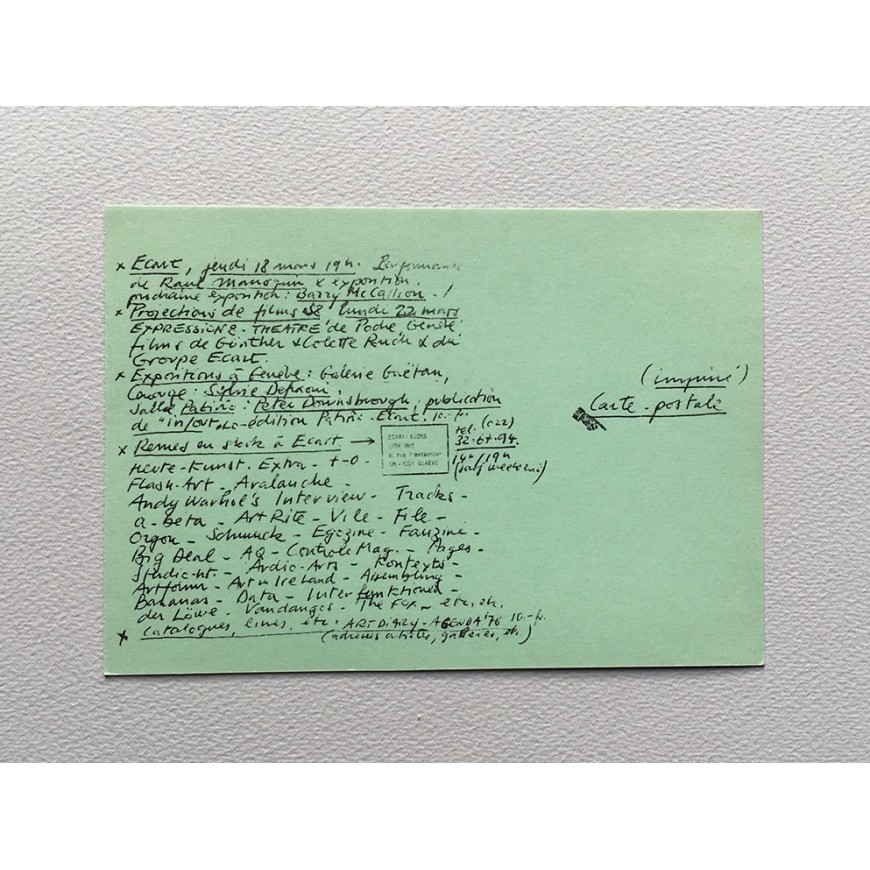 x Ecart, jeudi 18 mars 19h. Performance
de Raul Marroquin & exposition.
prochaine exposition: Barry McCallion - !
x Projections de films S8 lundi 22 mars
EXPRESSIONS - THEATRE de Poche, Genève
films de Günther & Colette Ruch & du
Groupe Ecart.
x Expositions à Genève: Galerie Gaëtan,
Carouge: Silvie Defraoui,
Salle Patiño: Peter Downsbrough, publication
de "in/out", co-édition Patiño-Ecart. 10.-fr.
x Revues en stock à Ecart →
ECART-BOOKS
6, rue P
CH - 1201 GENÈVE
tel. (022)
32.67.94.
14h/19h
(sauf weekend)
Heute-Kunst. Extra - +-0 -
Flash-Art - Avalanche -
Andy Warhol's Interview - Tracks -
a-beta - Art Rite - Vile - File -
Orgon - Schmuck - Egozine - Fanzine -
Big Deal - AQ - Controle Mag. - Pages -
Studio-Int. - Audio-Arts - Kontexts -
Artforum - Art in Ireland - Assembling -
Bananas - Data - Interfunktionen -
der Löwe - Vandangos - The Fox - etc. etc.
x Catalogues, livres, etc. ART DIARY - AGENDA '76 10.-fr.
(adresses artistes, galeries, etc.)
(imprimé)
Carte-postale